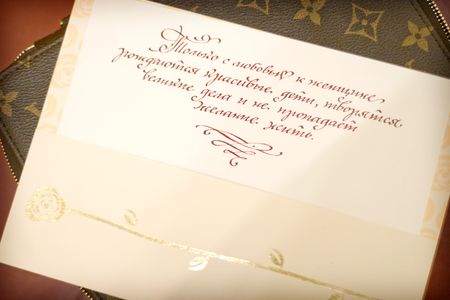 Только с любовью к женщине
рождаются красивые дети, творятся
великие дела и не пропадает
желание жить.